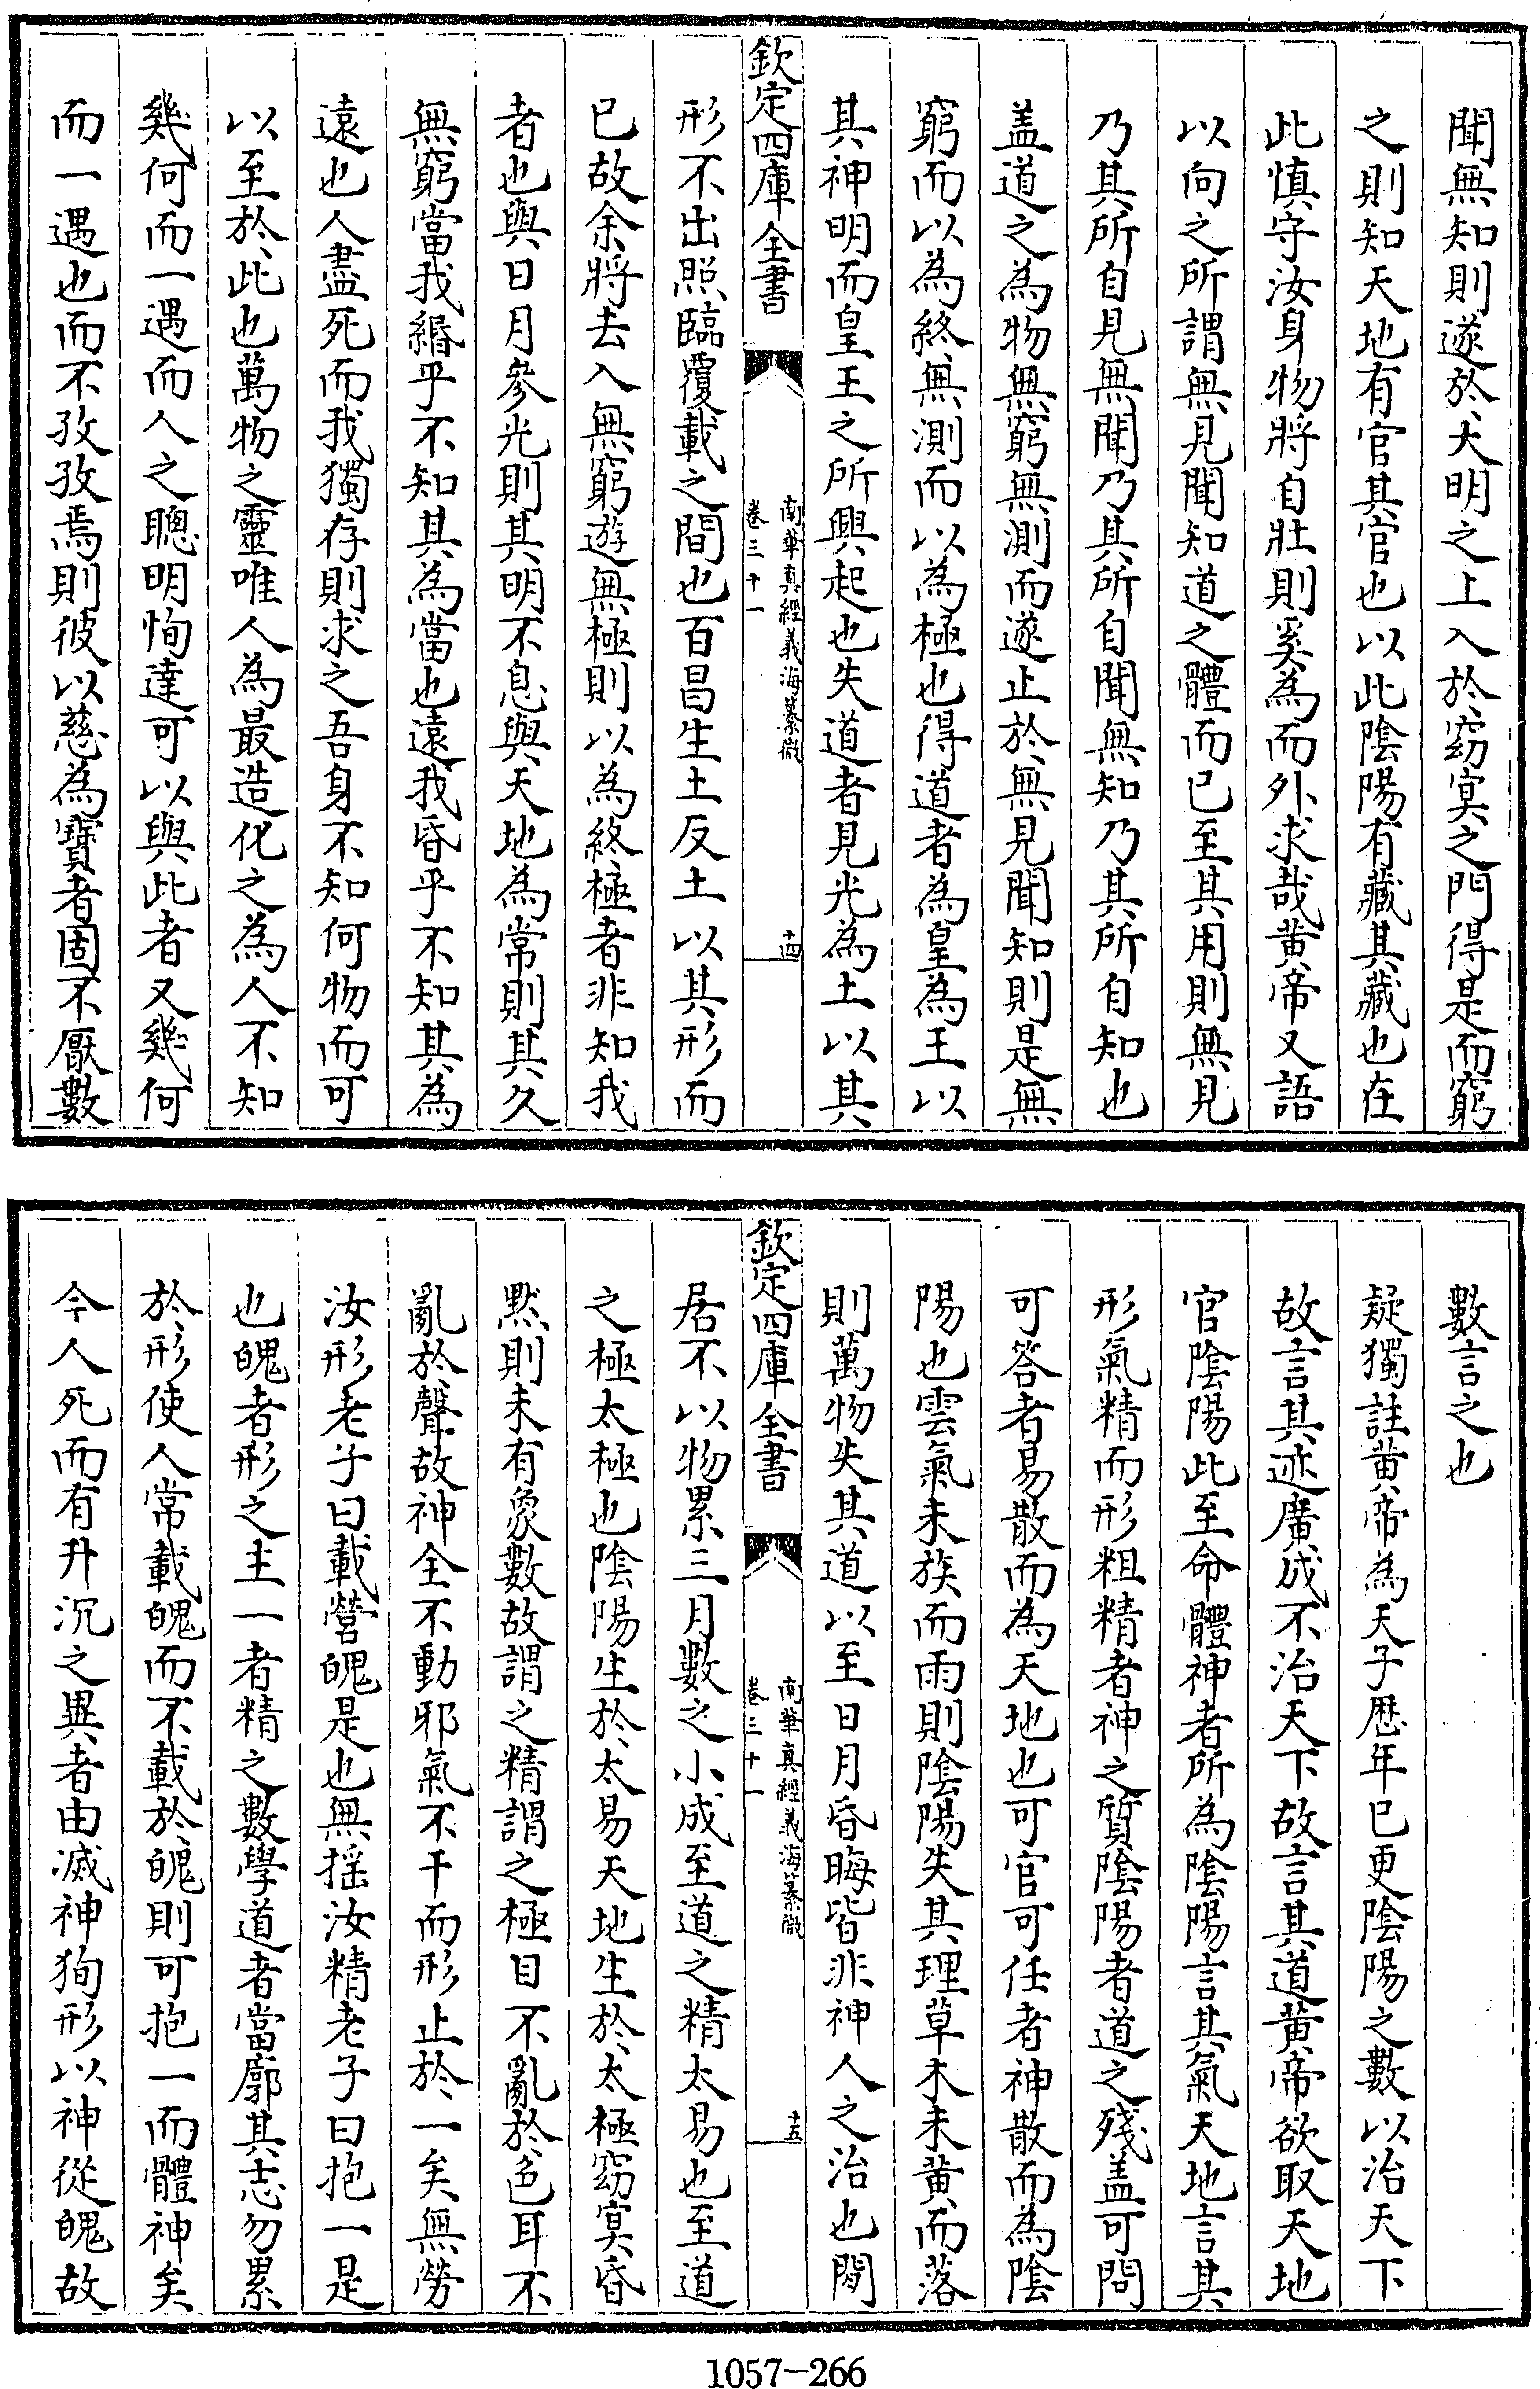 聞無知則遂於大明之上入於窈冥之門得是而窮
之則知天地有官其官也以此陰陽有藏其藏也在
此慎守汝身物將自壯則奚為而外求哉黃帝又語
以向之所謂無見聞知道之體而已至其用則無見
乃其所自見無聞乃其所自聞無知乃其所自知也
盖道之為物無窮無測而遂止於無見聞知則是無
窮而以為終無測而以為極也得道者為皇為王以
其神明而皇王之所興起也失道者見光為土以其
欽定四庫全書
南華真經義海纂微
卷三十一
十四
形不出照臨覆載之間也百昌生土反土以其形而
已故余將去入無窮遊無極則以為終極者非知我
者也與日月參光則其明不息與天地為常則其久
無窮當我緡乎不知其為當也遠我昏乎不知其為
遠也人盡死而我獨存則求之吾身不知何物而可
以至於此也萬物之靈唯人為最造化之為人不知
幾何而一遇而人之聰明恂達可以與此者又幾何
而一遇也而不孜孜焉則彼以慈為寶者固不厭數
數言之也
疑獨註黃帝為天子歴年已更陰陽之數以治天下
故言其迹廣成不治天下故言其道黃帝欲取天地
官陰陽此至命體神者所為陰陽言其氣天地言其
形氣精而形粗精者神之質陰陽者道之殘盖可問
可答者易散而為天地也可官可任者神散而為陰
陽也雲氣未族而雨則陰陽失其理草木未黃而落
則萬物失其道以至日月昏晦皆非神人之治也閒
欽定四庫全書
南華真經義海纂微
卷三十一
十五
居不以物累三月數之小成至道之精太易也至道
之極太極也陰陽生於太易天地生於太極窈冥昏
黙則未有象數故謂之精謂之極目不亂於色耳不
亂於聲故神全不動邪氣不干而形止於一矣無勞
汝形老子曰載營魄是也無揺汝精老子曰抱一是
也魄者形之主一者精之數學道者當廓其志勿累
於形使人常載魄而不載於魄則可抱一而體神矣
今人死而有升沉之異者由滅神狥形以神從魄故
1057-266